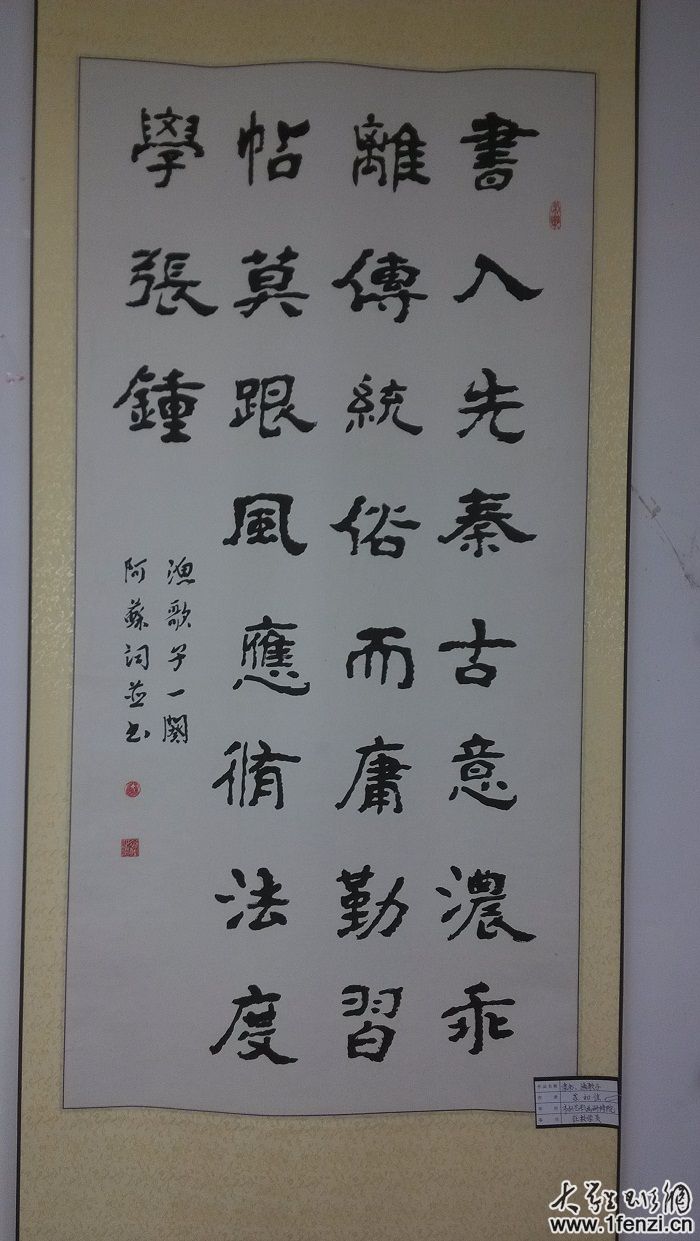 書入先秦古意濃乖
離傳統俗而庸勤習
帖莫跟風應脩法度
學張鍾
漁歌子一闋
阿蘇詞並书
作品名称 隶书、渔歌子
www.1fenzi.cn